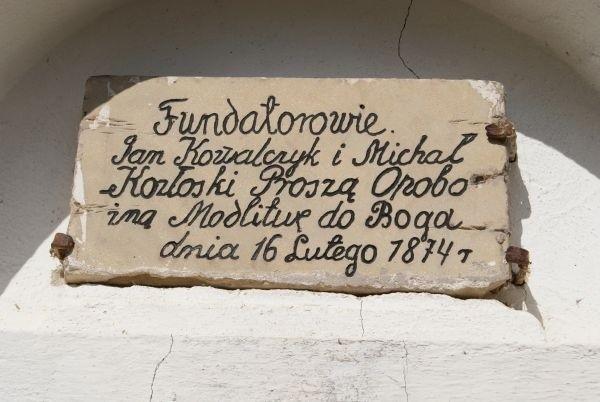 Fundatorowie.
Jan Kowalczyk i Michał
Kozłoski Proszą Opobo
żną Modlitwę do Boga
dnia 16 Lutego 1874 r